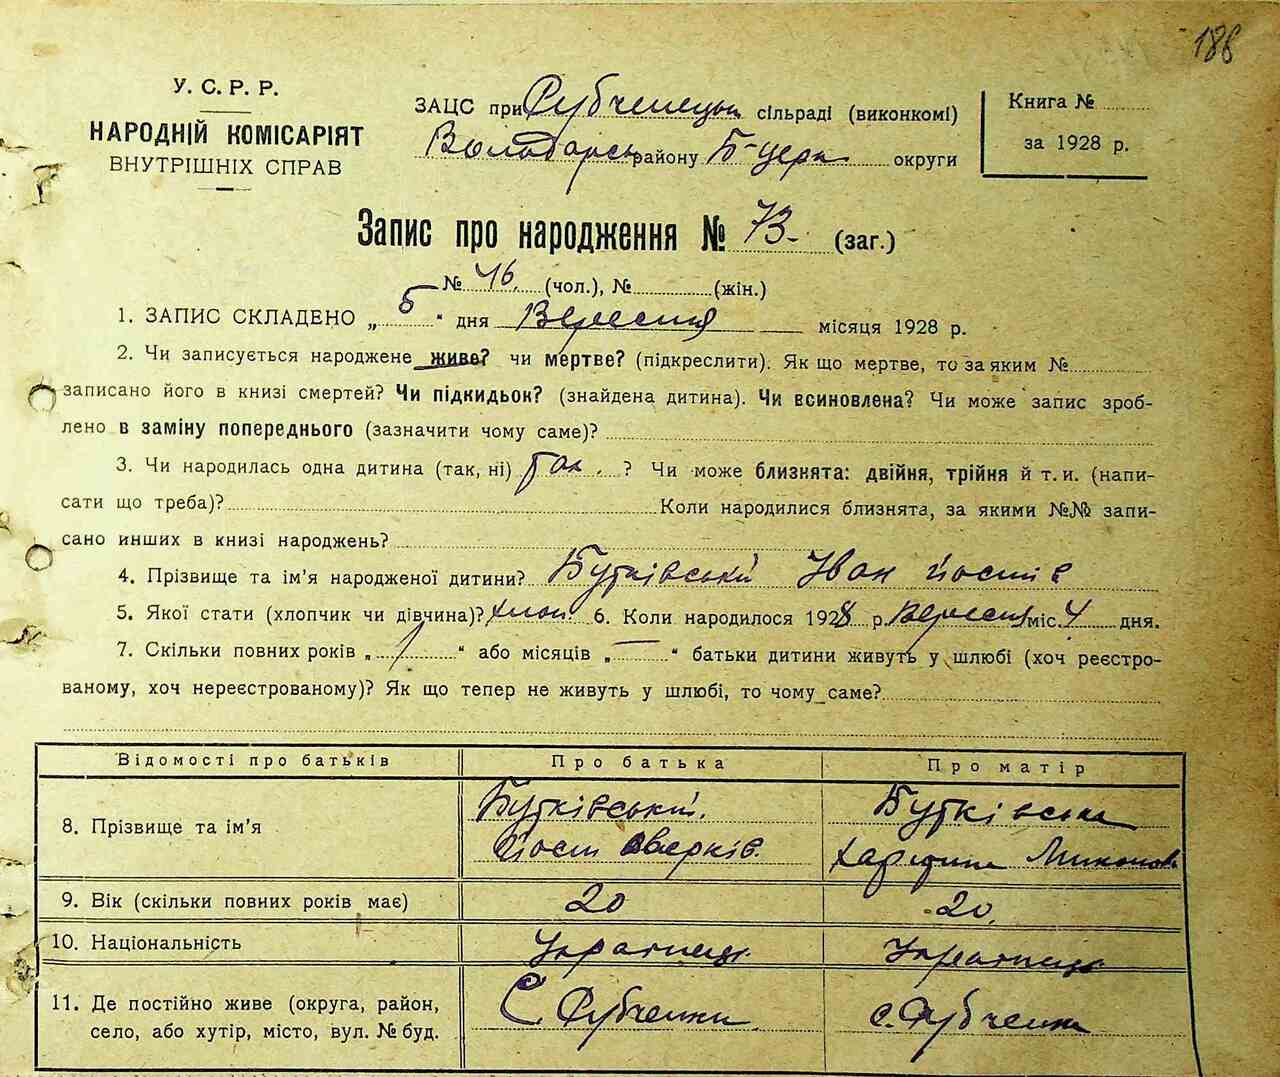 186
У. С. Р. Р.
НАРОДНІЙ КОМІСАРІЯТ
ВНУТРІШНІХ СПРАВ
ЗАЦС при сільраді (виконкомі)
району Б-церк округи
Книга №
за 1928 р.
Запис про народження № 73 (заг.)
№ 46 (чол.), № (жін.)
1. ЗАПИС СКЛАДЕНО „ 5 " дня Вересня місяця 1928 р.
2. Чи записується народжене живе? чи мертве? (підкреслити). Як що мертве, то за яким №
записано його в книзі смертей? Чи підкидьок? (знайдена дитина). Чи всиновлена? Чи може запис зроб-
лено в заміну попереднього (зазначити чому саме)?
3. Чи народилась одна дитина (так, ні) так. ? Чи може близнята: двійня, трійня й т. и. (напи-
сати що треба)? Коли народилися близнята, за якими №№ запи-
сано инших в книзі народжень?
4. Прізвище та ім'я народженої дитини? Бутківський Іван Йостів
5. Якої стати (хлопчик чи дівчина)? хлоп. 6. Коли народилося 1928 р. Вересня міс. 4 дня.
7. Скільки повних років „ 1 " або місяців „ — " батьки дитини живуть у шлюбі (хоч реєстро-
ваному, хоч нереєстрованому)? Як що тепер не живуть у шлюбі, то чому саме?
Відомості про батьків Про батька Про матір
8. Прізвище та ім'я Бутківський. Бутківська
Йост Оверків.
9. Вік (скільки повних років має) 20 20.
10. Національність Українець Українець
11. Де постійно живе (округа, район,
село, або хутір, місто, вул. № буд. С. Рубченки с. Рубченки